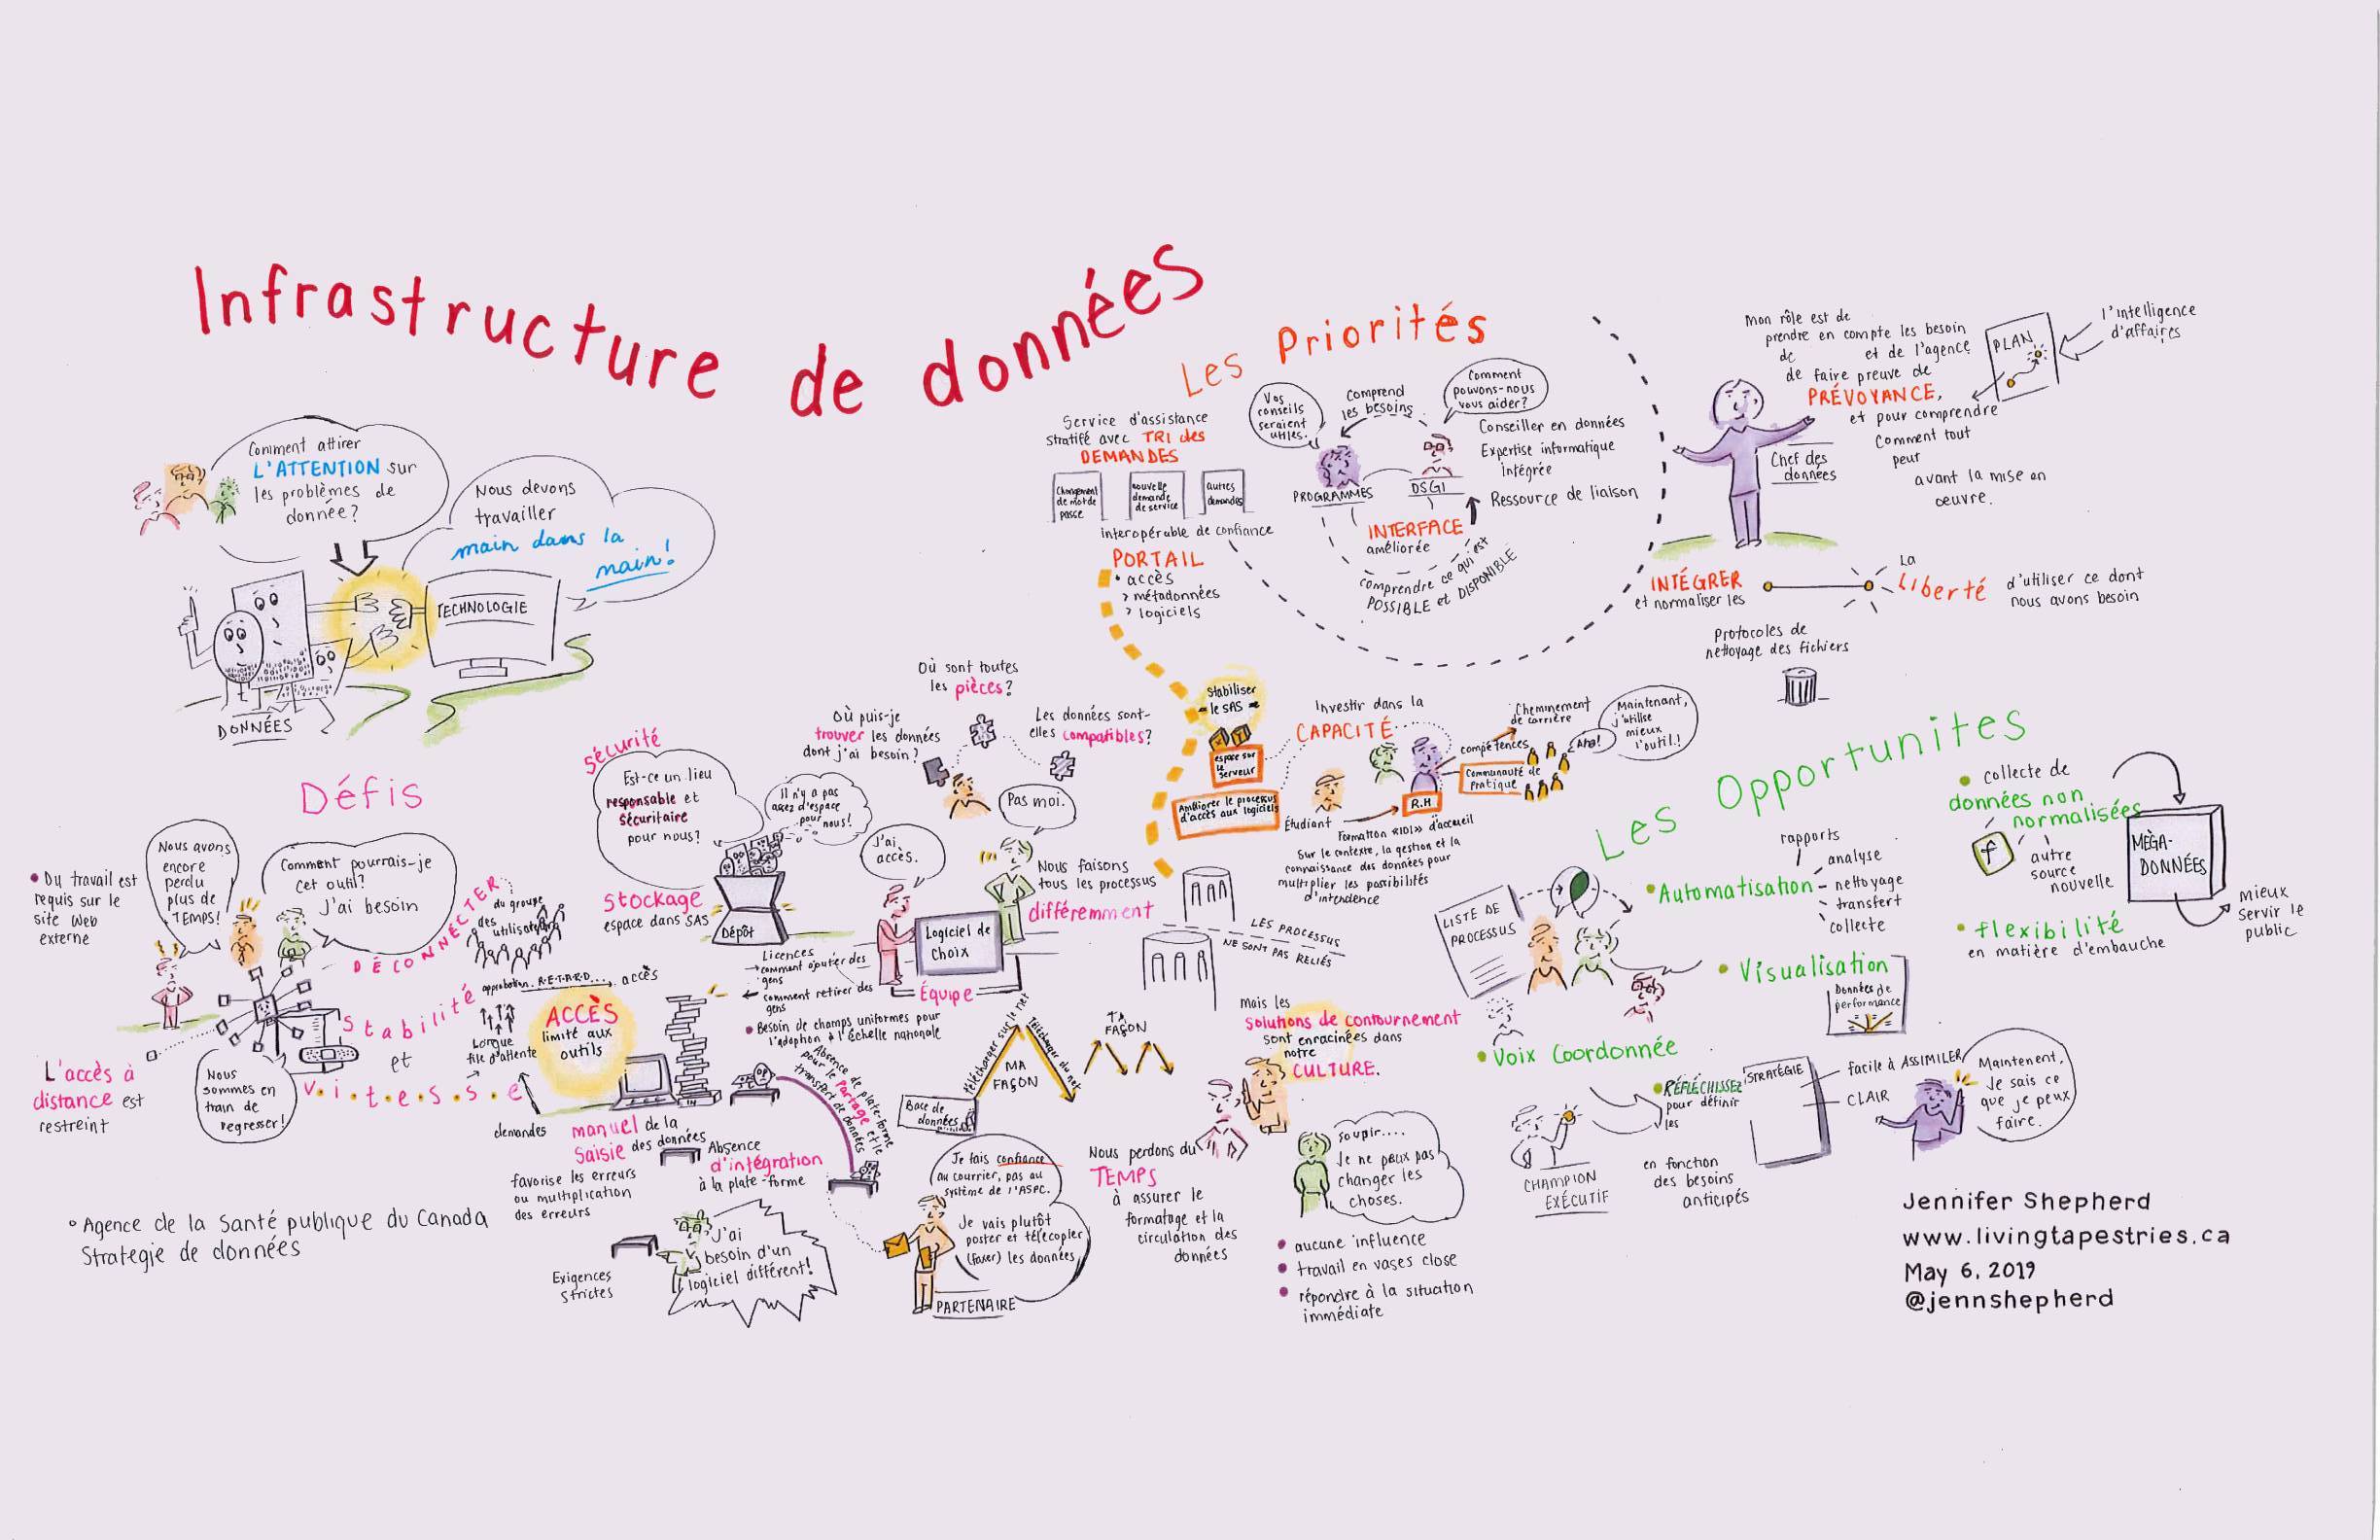 Infrastructure de données
Comment attirer
L'ATTENTION sur
les problèmes de
donnée?
Nous devons
travailler
main dans la
main!
TECHNOLOGIE
DONNÉES
Défis
• Du travail est
requis sur le
site Web
externe
Nous avons
encore
perdu
plus de
TEMPS!
Comment pourrais-je
cet outil?
J'ai besoin
DÉCONNECTER
du groupe
des
utilisateurs
L'accès à
distance est
restreint
Nous
sommes en
train de
regresser!
Stabilité
et
V.i.t.e.s.s.e
approbation. R.E.T.A.R.D.... accès
Longue
file d'attente
ACCÈS
limité aux
outils
demandes
manuel de la
Saisie des données
favorise les erreurs
ou multiplication
des erreurs
Absence
d'intégration
à la plate-forme
Exigences
strictes
J'ai
besoin d'un
logiciel différent!
° Agence de la Santé publique du Canada
Strategie de données
Sécurité
Est-ce un lieu
responsable et
sécuritaire
pour nous?
Il n'y a pas
assez d'espace
pour
nous!
Stockage
espace dans SAS
Dépôt
Où puis-je
trouver les données
dont j'ai besoin?
Où sont toutes
les pièces?
Les données sont-
elles compatibles?
Pas moi.
J'ai
accès.
Nous faisons
tous les processus
différemment
Logiciel de
choix
Équipe
Licences
→ comment ajouter des
gens
← comment retirer des
gens
• Besoin de champs uniformes pour
l'adoption à l'échelle nationale
Absence de plate-forme
pour le partage et le
transport de données
Télécharger sur le net
Télécharger du net
MA
FAÇON
TA
FAÇON
Base de
données
Je fais confiance
au courrier, pas au
système de l'ASPC.
Je vais plutôt
poster et télécopier
(faxer) les données
PARTENAIRE
LES PROCESSUS
NE SONT PAS RELIÉS
mais les
Solutions de contournement
sont enracinées dans
notre
CULTURE.
Nous perdons du
TEMPS
à assurer le
formatage et la
circulation des
données
soupir....
Je ne peux pas
changer les
choses.
• aucune influence
• travail en vases close
• répondre à la situation
immédiate
Les Priorités
Service d'assistance
stratifé avec TRI des
DEMANDES
Changement
de mot de
passe
nouvelle
demande
de service
autres
demandes
interopérable de confiance
PORTAIL
• accès
> métadonnées
> logiciels
Vos
conseils
seraient
utiles.
Comprend
les besoins
Comment
pouvons-nous
vous aider?
Conseiller en données
Expertise informatique
intégrée
Ressource de liaison
PROGRAMMES
DSGI
INTERFACE
améliorée
comprendre ce qui est
POSSIBLE et DISPONIBLE
Stabiliser
le SAS
espace sur
le
serveur
Améliorer le processus
d'accès aux logiciels
Investir dans la
CAPACITÉ
Étudiant
R.H
compétences
Cheminement
de carrière
Communauté de
pratique
Aha!
Maintenant,
j'utilise
mieux
l'outil!
Formation «101» d'accueil
Sur le contexte, la gestion et la
connaissance des données pour
multiplier les possibilités
d'intendence
Mon rôle est de
prendre en compte les besoin
de et de l'agence
de faire preuve de
PRÉVOYANCE,
et pour comprendre
comment tout
peut
avant la mise en
oeuvre.
Chef des
données
PLAN
l'intelligence
d'affaires
INTÉGRER
et normaliser les
La
Liberté d'utiliser ce dont
nous avons besoin
Protocoles de
nettoyage des fichiers
Les Opportunites
LISTE DE
PROCESSUS
• Automatisation
rapports
analyse
nettoyage
transfert
collecte
• Visualisation
Données de
performance
• Voix Coordonnée
• collecte de
données non
normalisées
f
autre
source
nouvelle
MÉGA-
DONNÉES
mieux
servir le
public
• flexibilité
en matière d'embauche
CHAMPION
EXÉCUTIF
• RÉFLÉCHISSEZ
pour définir
les
en fonction
des besoins
anticipés
STRATÉGIE
facile à ASSIMILER
CLAIR
Maintenent,
Je sais ce
que je peux
faire.
Jennifer Shepherd
www.livingtapestries.ca
May 6, 2019
@jennshepherd